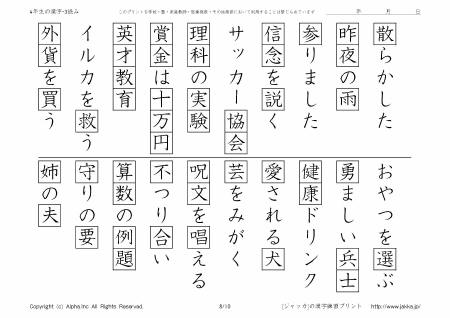 4年生の漢字-3読み
このプリントを学校・塾・家庭教師・医療機関・その他施設において利用することは禁じられています
年 月 日
散らかした
昨夜の雨
参りました
信念を説く
サッカー協会
理科の実験
賞金は十万円
英才教育
イルカを救う
外貨を買う
おやつを選ぶ
勇ましい兵士
健康ドリンク
愛される犬
芸をみがく
呪文を唱える
不つり合い
算数の例題
守りの要
姉の夫
Copyright (c) Alpha.Inc All Rights Reserved.
8/10
[ジャッカ]の漢字練習プリント http://www.jakka.jp/